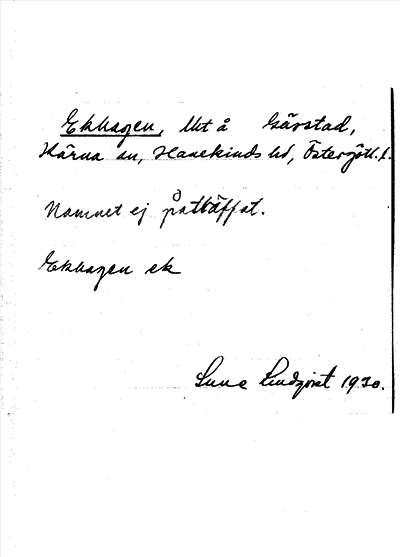 Ekhagen, lht å Gärstad,
Kärna sn, Hanekinds hd, Östergötl. l.
Namnet ej påträffat.
Ekhagen ek
Sune Lindqvist 1930.